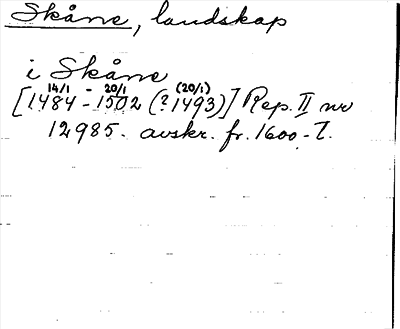 Skåne, landskap
i Skåne
14/1 - 20/1 (20/1)
[1484 - 1502 (? 1493)] Rep. II nr
12985. avskr. fr. 1600-T.